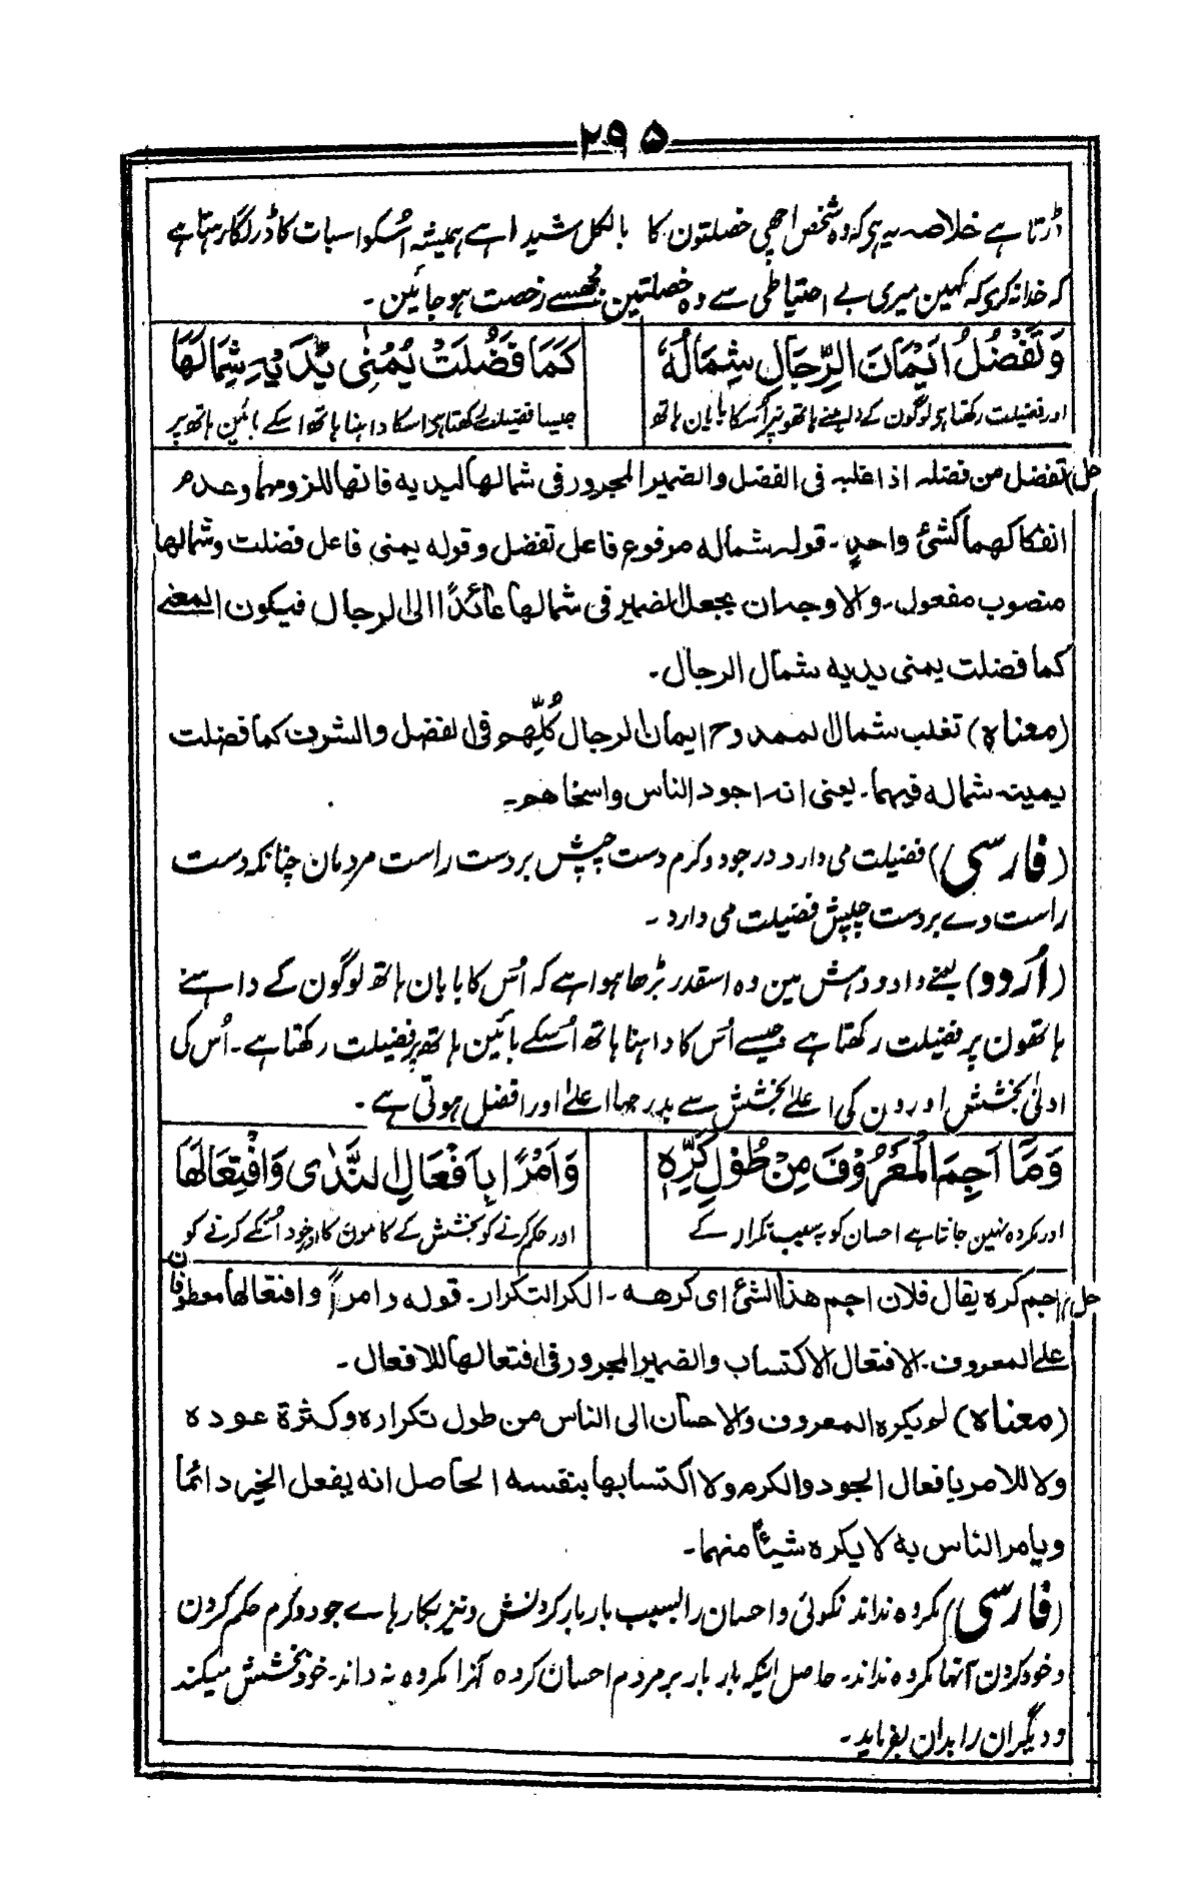 ۲۹۵
ڈرتا ہے خلاصہ یہ ہی کہ وہ شخص اچھی خصلتون کا بالکل شیدا ہے ہمیشہ اُسکو اسبات کا ڈر لگا رہتا ہے
کہ خدا نہ کری کہ کہین میری بے احتیاطی سے وہ خصلتین مجھسے رخصت ہو جائین۔
وَتَفْضُلُ اَيْمَانَ الرِّجَالِ شِمَالُهٗ
كَمَا فَضُلَتْ يُمْنٰى يَدَيْهِ شِمَالَهَا
اور فضیلت رکھتا ہی لوگون کے داہنے ہاتھونپر اُسکا بایان ہاتھ
جیسا فضیلت رکھتا ہی اسکا داہنا ہاتھ اسکے بائین ہاتھ پر
حل) تفضل من فضله اذا غلبه فى الفضل والضمير المجرور فى شمالها ليديه فانها للزومهما وعدم
انفكاكهما كشئ واحدٍ۔ قوله شماله مرفوع فاعل تفضل وقوله يمنى فاعل فضلت وشمالها
منصوب مفعول۔ والاوجه ان يجعل الضمير فى شمالها عائدًا الى الرجال فيكون المعنے
كما فضلت يمنى يديه شمال الرجال۔
(معناه) تغلب شمال الممدوح ايمان الرجال كُلِّهم فى الفضل والشرف كما فضلت
يمينه شماله فيهما۔ يعنى انه اجود الناس واسخاهم۔
(فارسی) فضیلت می دارد در جود و کرم دست چپش بر دست راست مردمان چنانکہ دست
راست وے بر دست چپش فضیلت می دارد۔
(اُردو) یعنے داد و دہش مین وہ اسقدر بڑھا ہوا ہے کہ اُس کا بایان ہاتھ لوگون کے داہنے
ہاتھون پر فضیلت رکھتا ہے جیسے اُس کا داہنا ہاتھ اُسکے بائین ہاتھ پر فضیلت رکھتا ہے۔ اُس کی
ادنیٰ بخشش اورون کی اعلےٰ بخشش سے بدرجہا اعلےٰ اور افضل ہوتی ہے۔
وَمَا اَجِمَ الْمَعْرُوْفَ مِنْ طُوْلِ كَرِّهٖ
وَاَمْرًا بِاَفْعَالِ النَّدٰى وَافْتِعَالَهَا
اور مکروہ نہین جانتا ہے احسان کو بہ سبب تکرار کے
اور حکم کرنے کو بخشش کے کامون کا اور خود اُنکے کرنے کو
حل) اجم كره يقال فلان اجم هذا الشئ اى كرهه۔ الكر التكرار۔ قوله وامرًا وافتعالها معطوفان
على المعروف۔ الافتعال الاكتساب والضمير المجرور فى افتعالها للافعال۔
(معناه) لم يكره المعروف والاحسان الى الناس من طول تكراره وكثرة عوده
ولا للامر بافعال الجود والكرم ولا اكتسابها بنفسه الحاصل انه يفعل الخير دائما
ويامر الناس به لا يكره شيئًا منهما۔
(فارسی) مکروہ نداند نکوئی و احسان را بسبب بار بار کردنش و نیز بکارہاے جود و کرم حکم کردن
و خود کردن آنہا مکروہ نداند۔ حاصل اینکہ بار بار بر مردم احسان کردہ آنرا مکروہ نہ داند۔ خود بخشش میکند
و دیگران را بدان بفرماید۔